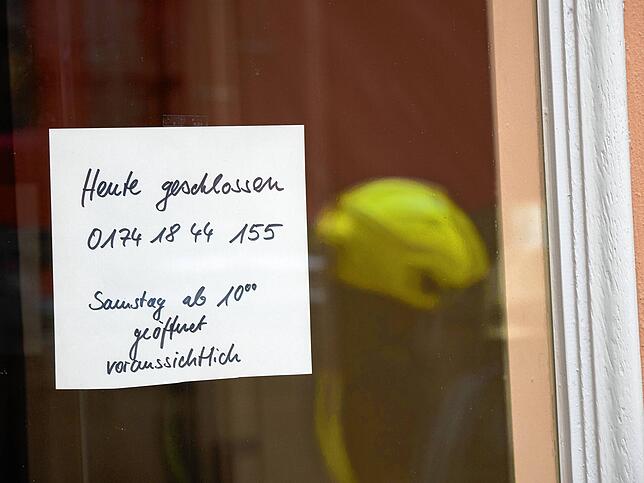 Heute geschlossen
0174 18 44 155
Samstag ab 10⁰⁰
geöffnet
voraussichtlich